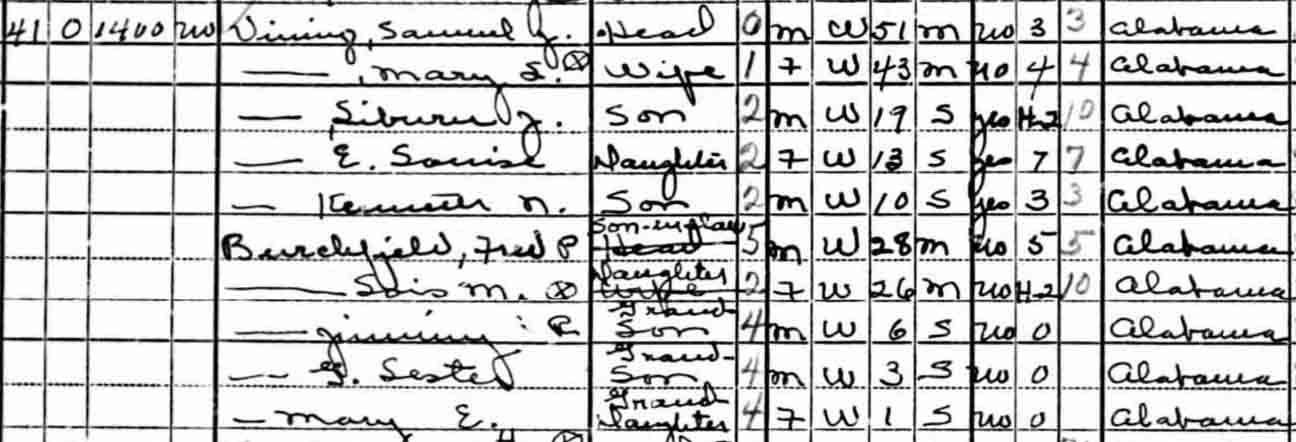 41 0 1400 no Vining, Samuel J. Head 0 m W 51 m no 3 3 Alabama
— , Mary L. ⊗ Wife 1 F W 43 m no 4 4 Alabama
— J. Son 2 m W 19 S yes H-2 10 Alabama
— E. Louise Daughter 2 F W 13 S yes 7 7 Alabama
— Kenneth N. Son 2 m W 10 S yes 3 3 Alabama
Burchfield, Fred P Son-in-law Head 5 m W 28 m no 5 5 Alabama
— Lois M. ⊗ Daughter Wife 2 F W 26 m no H-2 10 Alabama
— Jimmy R Grand Son 4 m W 6 S no 0 Alabama
— G. Lester Grand- Son 4 m W 3 S no 0 Alabama
— Mary E. Grand Daughter 4 F W 1 S no 0 Alabama